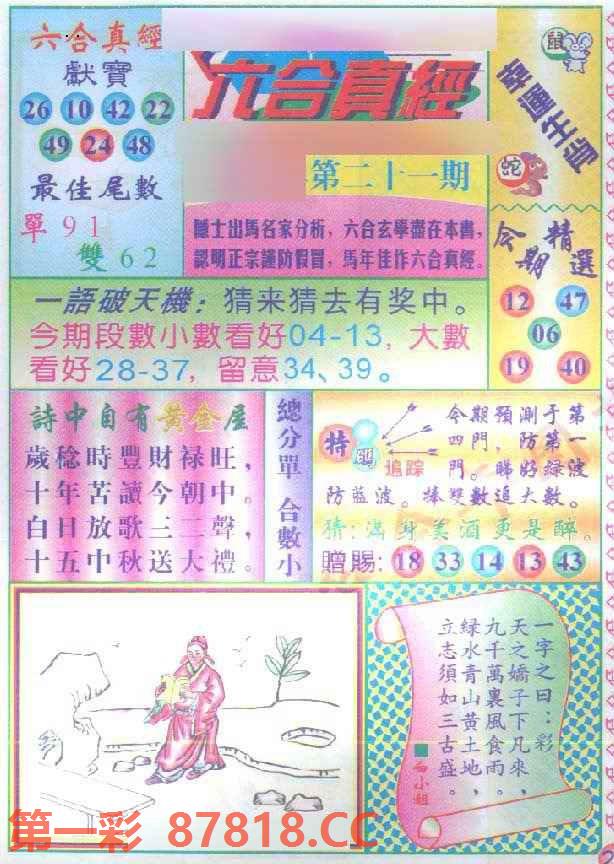 六合真經
獻寶
26 10 42 22
49 24 48
最佳尾數
單91
雙62
六合真經
第二十一期
隱士出馬名家分析，六合玄學盡在本書，
認明正宗謹防假冒，馬年佳作六合真經。
鼠
幸運生肖
蛇
今期精選
12 47
06
19 40
一語破天機：猜来猜去有奖中。
今期段數小數看好04-13，大數
看好28-37，留意34、39。
詩中自有黃金屋
歲稔時豐財禄旺，
十年苦讀今朝中。
白日放歌三二聲，
十五中秋送大禮。
總分單 合數小
特碼
追踪
今期預測于第
四門，防第一
門。睇好绿波
防蓝波。捧雙數追大數。
猜：满身美酒更是醉。
贈賜：18 33 14 13 43
一字之曰：彩
天之嬌子下凡來，
九千萬裏風食雨，
绿水青山黄土地，
立志須如三古盛。
小姐
第一彩 87818.CC